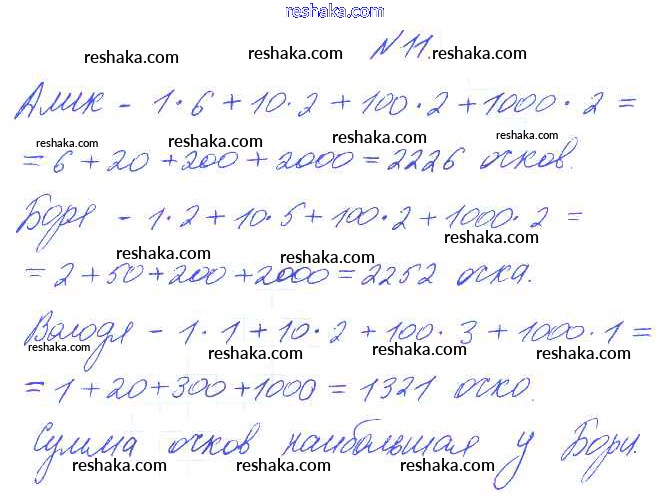 www.reshaka.com
reshaka.com reshaka.com № 11. reshaka.com
Алик - 1·6 + 10·2 + 100·2 + 1000·2 =
reshaka.com reshaka.com reshaka.com
= 6 + 20 + 200 + 2000 = 2226 очков.
Боря - 1·2 + 10·5 + 100·2 + 1000·2 =
reshaka.com reshaka.com reshaka.com
= 2 + 50 + 200 + 2000 = 2252 очка.
Володя - 1·1 + 10·2 + 100·3 + 1000·1 =
reshaka.com reshaka.com reshaka.com
= 1 + 20 + 300 + 1000 = 1321 очко.
Сумма очков наибольшая у Бори.
reshaka.com reshaka.com reshaka.com